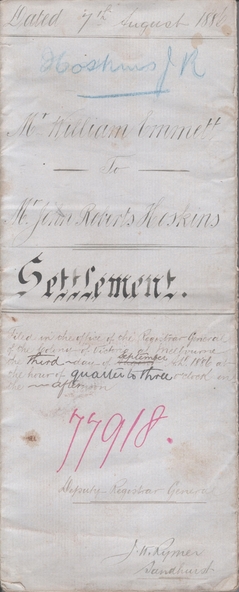 Dated 7th August 188
Hoskins J R
Mr William Emmett
To
Mr John Roberts Hoskins
Settlement.
Filed in the office of the Registrar General
of the Colony of Victoria at Melbourne
this third day of September 1886 at
the hour of quarter to three o'clock in
the afternoon
77918.
Deputy Registrar General
J. W. Rymer
Sandhurst